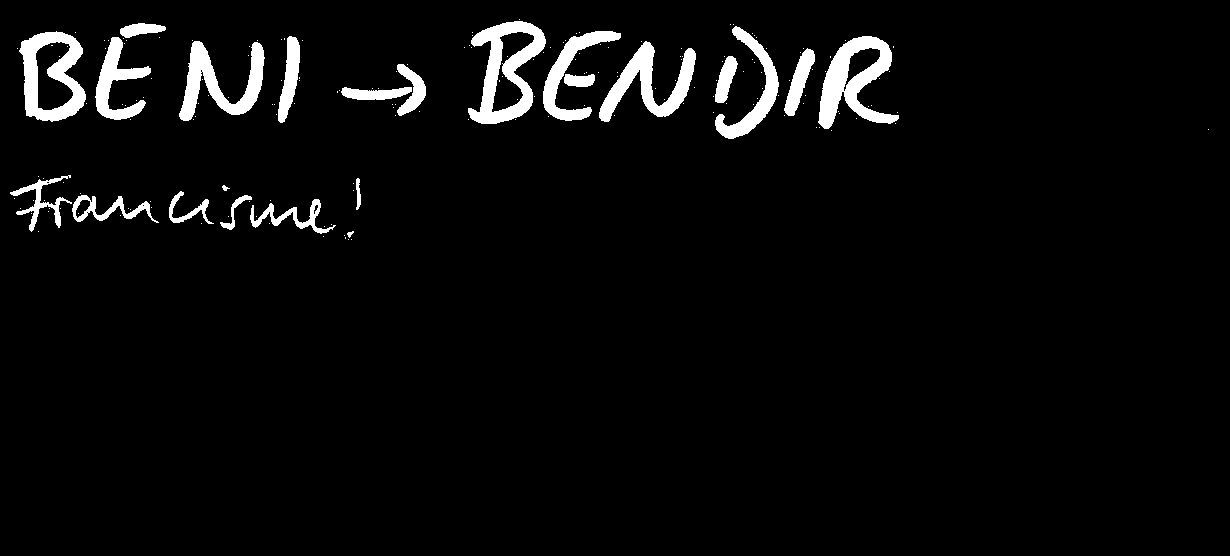 BENI → BENDIR
Francisme!